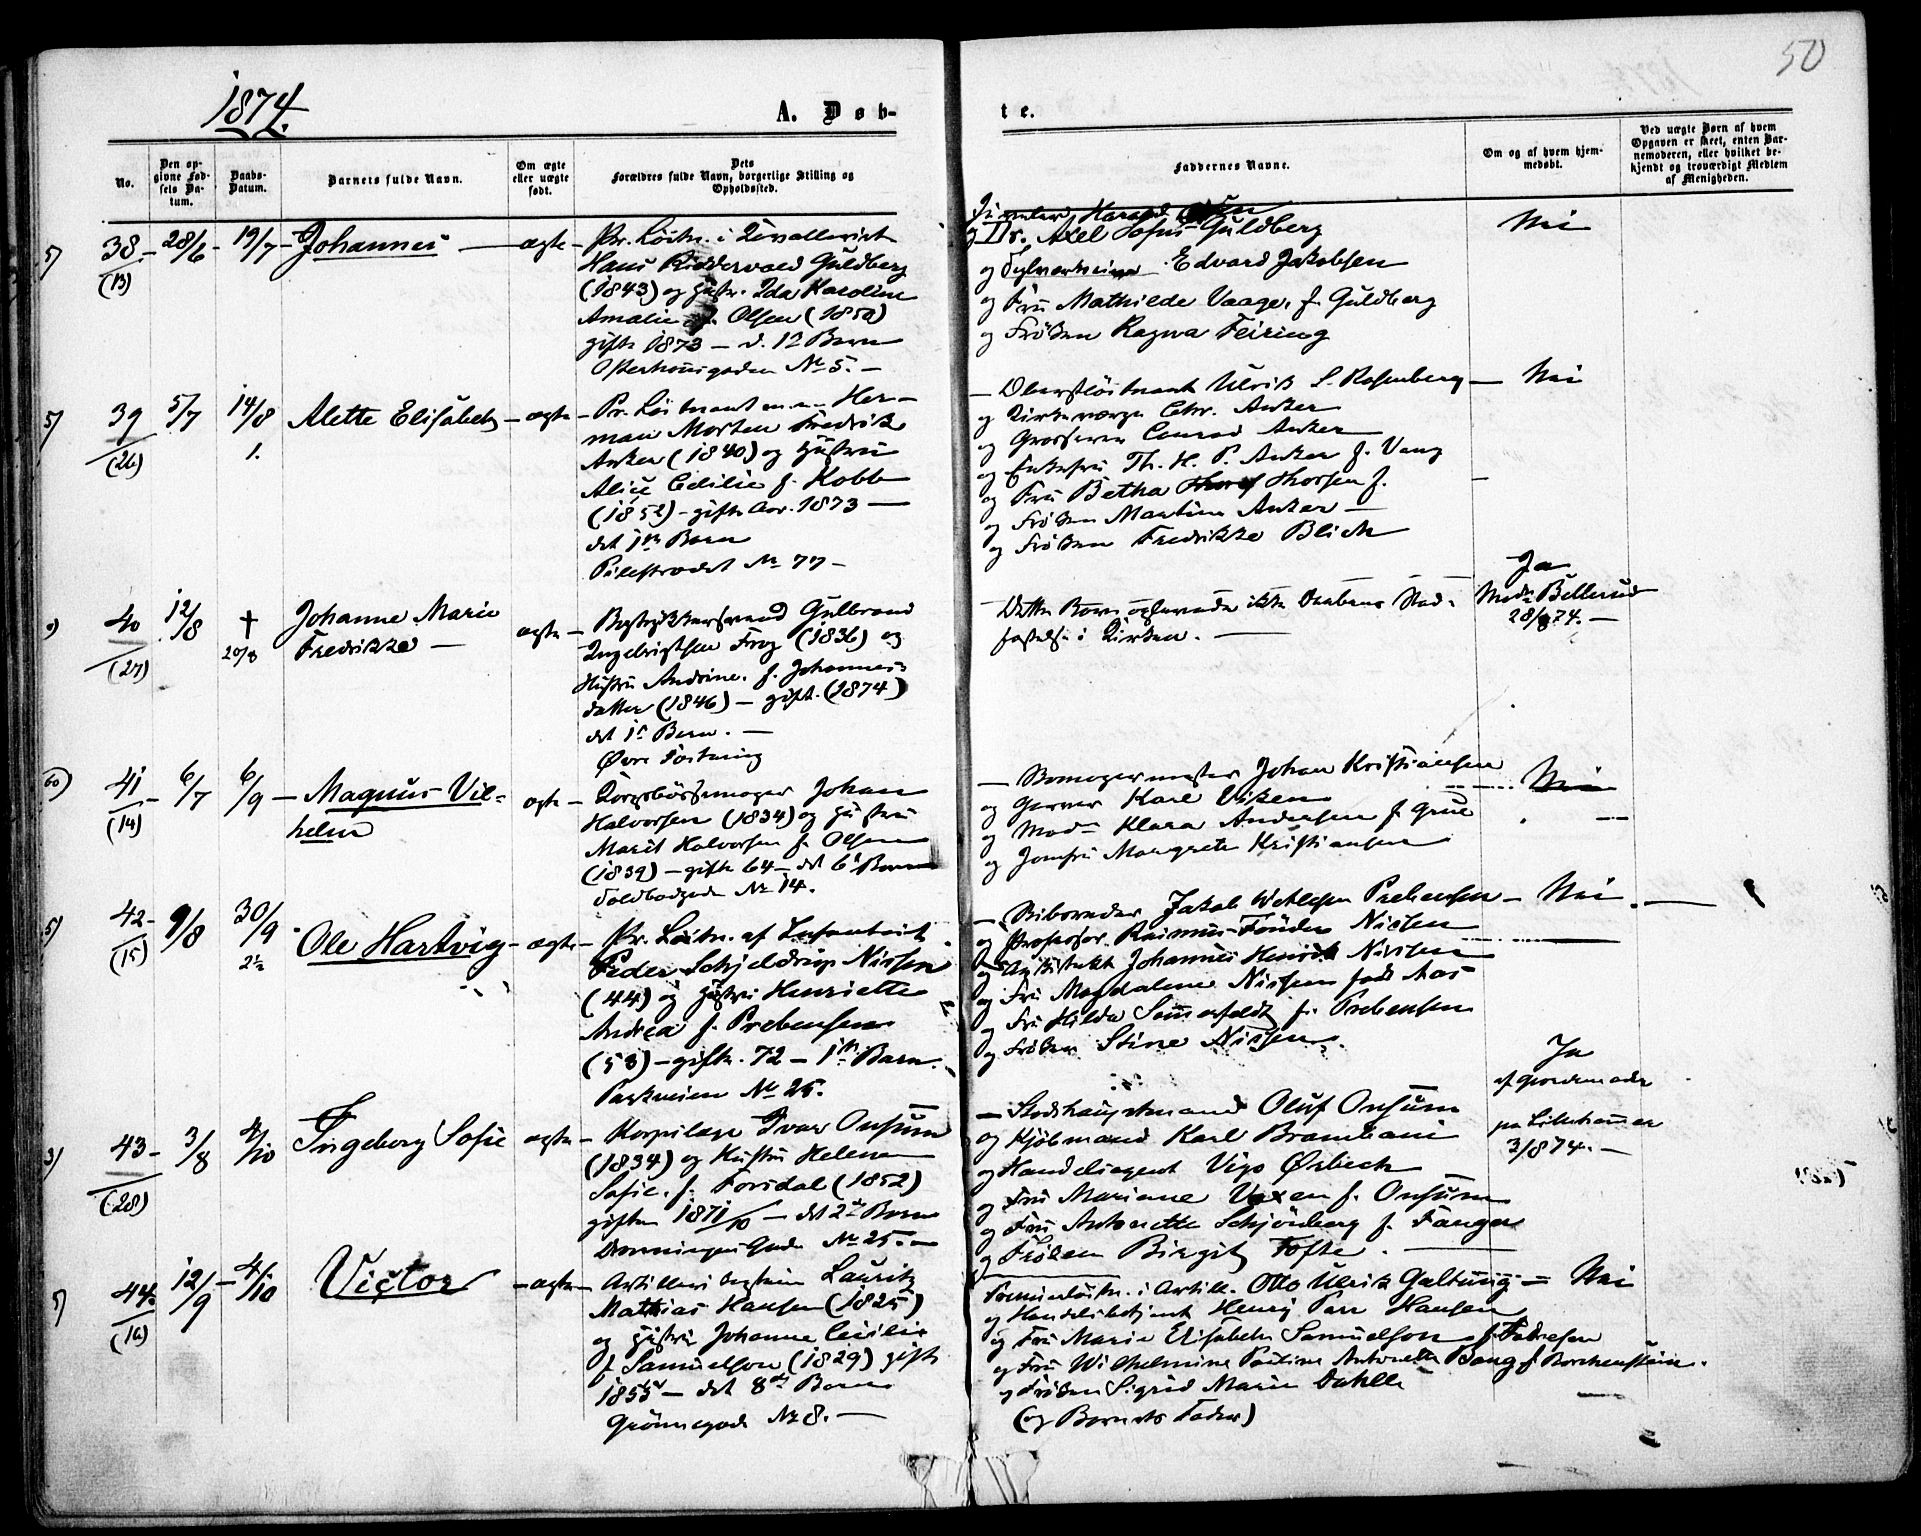 50
1874.
A. Døb-
te.
No.
Den op-
givne Fød-
sels Da-
tum.
Daabs-
Datum.
Barnets fulde Navn.
Om ægte
eller uægte
født.
Dets
Forældres fulde Navn, borgerlige Stilling og
Opholdssted.
Faddernes Navne.
Om og af hvem hjem-
medøbt.
Ved uægte Børn af hvem
Opgaven er skeet, enten Bar-
nemoderen, eller hvilket be-
kjendt og troværdigt Medlem
af Menigheden.
5)
38.
(13)
28/6
19/7
Johannes
ægte
Pr. Løitn. i Kavalleriet
Hans Riddervold Guldberg
(1843) og Hustr. Ida Karoline
Amalie f. Olsen (1850)
gifte 1873 — d. 1te Barn
No 5.
Harald
og Dr. Axel Sofus Guldberg
og Edvard Jakobsen
og Fru Mathilde Vaage, f. Guldberg
og Frøken Ragna Feiring
Nei
5)
39
(26)
5/7
14/8
1.
Alette Elisabeth
ægte
Pr. Løitnant m. m. Her-
man Morten Fredrik
Anker (1840) og Hustru
Alice Cecilie f. Kobb
(1852) - gifte 1873
det 1te Barn
Pilestrædet No 77
Oberstløitnant Ulrik S. Rosenberg
og Kirkeværge Chr. Anker
og Grosserer Conrad Anker
og Enkefru Th. H. P. Anker f. Vang
og Fru Betha Thorsen f.
og Frøken Martine Anker
og Frøken Fredrikke Blich
Nei
40
(27)
12/8
†
20/8
Johanne Marie
Fredrikke
ægte
Bogtrykkersvend Gulbrand
Ingebrigtsen Frog (1836) og
Hustru Andrine. f. Johannes-
datter (1846) — gift. (1874)
det 1te Barn.
Øvre
Dette Barn ikke Daabens Stad-
fæstelse i Kirken.
Ja
Mad. Bellerud
28/874.
60)
41
(14)
6/7
6/9
Magnus Vil-
helm
ægte
Johan
Halvorsen (1834) og Hustru
Marit Halvorsen f. Olsen
(1839) - gifte 64 - det 6te Barn
Toldbodgade No 14.
Johan Kristiansen
og Garver Karl Viken
og Mad. Klara Andersen f. Grue
og Jomfru Margrete Kristiansen
Nei
5)
42
(15)
9/8
30/9
2½
Ole Hartvig
ægte
Pr. Løitn. af Infanteriet
Peder Schjeldrup Nissen
(44) og Hustru Henriette
Andrea f. Prebensen
(53) - gifte. 72 - 1te Barn.
Parkveien No 25.
Jakob Wetlesen Prebensen
og Professor Rasmus Tønder Nissen
og Arkitekt Johannes Henrik Nissen
og Fru Magdalene Nissen født Aas
og Fru Hilda Sommerfeldt f. Prebensen
og Frøken Stine Nissen.
Nei
3)
43
(28)
3/8
4/10
Ingeborg Sofie
ægte
Korpslæge Ivar Onsum
(1834) og Hustru Helene
Sofie. f. Forsdal (1852)
gifte 1871/10 - det 2det Barn
Dronningens Gade No 25.
Stadshauptmand Oluf Onsum
og Kjøbmand Karl Bramhani
og Handelsagent Vigo Ørbeck
og Fru Mariane Vaxen f. Onsum
og Fru Antonette Schjønberg f. Fanger
og Frøken Birgit Tofte.
Ja
af Gjordemoder
pa Lillehammer
3/874.
5)
44.
(16)
12/9
4/10
Victor
ægte
Artilleri Lauritz
Mathias Hansen (1825)
og Hustru Johanne Cecilie
f. Samuelson (1829) gift
1855 — det 8de Barn
Grønnegade No 8.
Premierløitn. i Artill. Otto Ulrik Galtung
og Handelsbetjent Henry Parr Hansen
og Fru Marie Elisabeth Samuelson
og Fru Wilhelmine Pauline Antonette Bang f. Borchenstein.
og Frøken Sigrid Marie Dahlle
(og Barnets Fader)
Nei